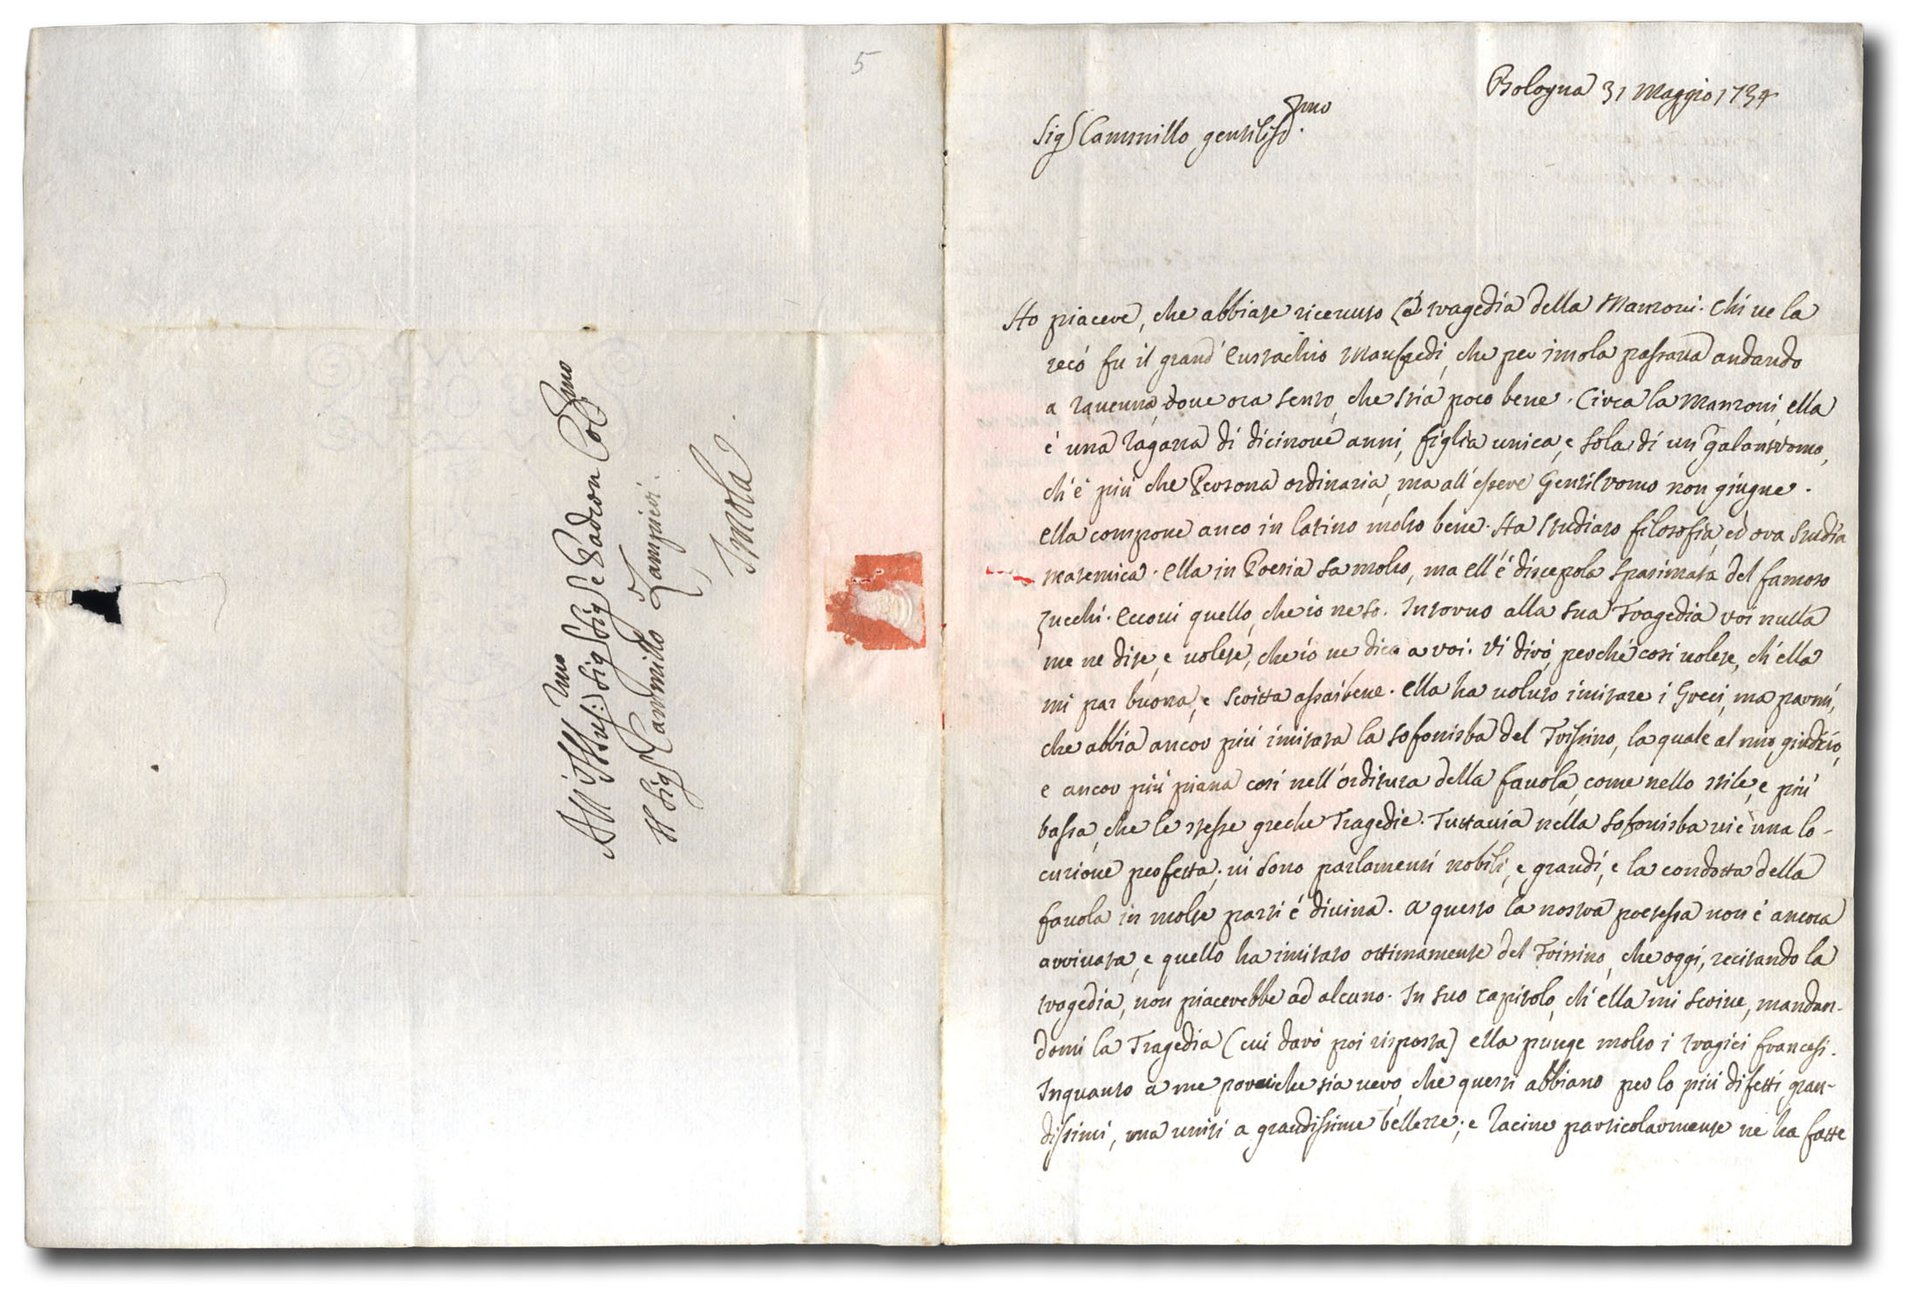 5
All' Illus:mo Sig Sig e Padron Col:mo
Il Sig Cammillo Zampieri.
Imola
Bologna 31 Maggio 1734
Sig Cammillo gentiliss.mo
Ho piacere, che abbiate riceuuto la tragedia della Manzoni. Chi ue la
recò fu il grand' Eustachio Manfredi, che per imola passaua andando
a rauenna, doue ora sento, che stia poco bene. Circa la Manzoni, ella
è una ragazza di dicinoue anni, figlia unica, e sola di un galantuomo,
ch'è più che Persona ordinaria, ma all' essere Gentiluomo non giugne.
Ella compone anco in latino molto bene. Ha studiato filosofia, ed ora studia
matemica. Ella in Poesia sa molto, ma ell' è discepola spasimata del famoso
Zucchi. Eccoui quello, che io ne so. Intorno alla sua Tragedia voi nulla
me ne dite, e uolete, che io ne dica a voi. Vi dirò, perché così uolete, ch'ella
mi par buona, e scritta assai bene. Ella ha uoluto imitare i Greci, ma parmi,
che abbia ancor più imitata la Sofonisba del Trissino, la quale al mio giudicio,
e ancor più piana così nell' orditura della fauola, come nello stile, e più
bassa, che le stesse greche Tragedie. Tuttauia nella Sofonisba ui è una lo-
cuzione perfetta; ui sono parlamenti nobili, e grandi, e la condotta della
fauola in molte parti è diuina. A questo la nostra poetessa non è ancora
arriuata, e quello ha imitato ottimamente del Trissino, che oggi, recitando la
tragedia, non piacerebbe ad alcuno. In suo capitolo, ch'ella mi scriue, mandan-
domi la Tragedia (cui darò poi risposta) ella punge molto i tragici francesi.
Inquanto a me che sia uero, che questi abbiano per lo più difetti gran-
dissimi, ma uniti a grandissime bellezze; e Racine particolarmente ne ha fatte